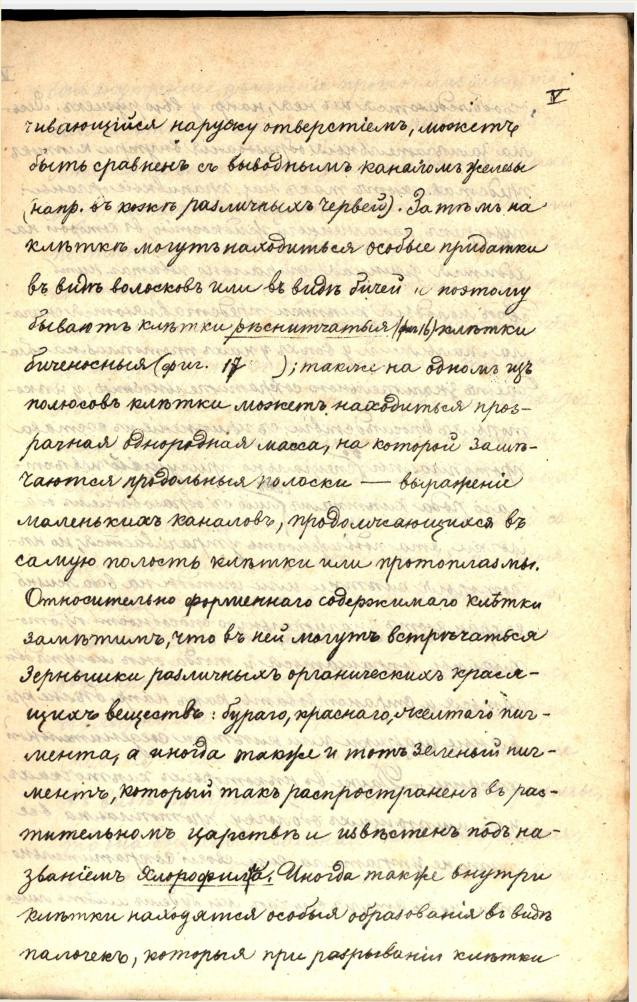 V
чивающiйся наружу отверстiемъ, можетъ
быть сравненъ съ выводнымъ каналомъ железы
(напр. въ кожѣ различныхъ червей). Затѣмъ на
клѣткѣ могутъ находиться особые придатки
въ видѣ волосковъ или въ видѣ бичей и поэтому
бываютъ клѣтки рѣснитчатыя (фиг 16) клѣтки
биченосныя (фиг. 17 ); также на одномъ изъ
полюсовъ клѣтки можетъ находиться проз-
рачная однородная масса, на которой замѣ-
чаются продольныя полоски — выраженiе
маленькихъ каналовъ, продолжающихся въ
самую полость клѣтки или протоплазмы.
Относительно форменнаго содержимаго клѣтки
замѣтимъ, что въ ней могутъ встрѣчаться
зернышки различныхъ органическихъ крася-
щихъ веществъ: бураго, краснаго, желтаго пиг-
мента, а иногда также и тотъ зеленый пиг-
ментъ, который такъ распространенъ въ рас-
тительномъ царствѣ и извѣстенъ подъ на-
званiемъ хлорофилла. Иногда также внутри
клѣтки находятся особыя образованiя въ видѣ
палочекъ, которыя при разрыванiи клѣтки